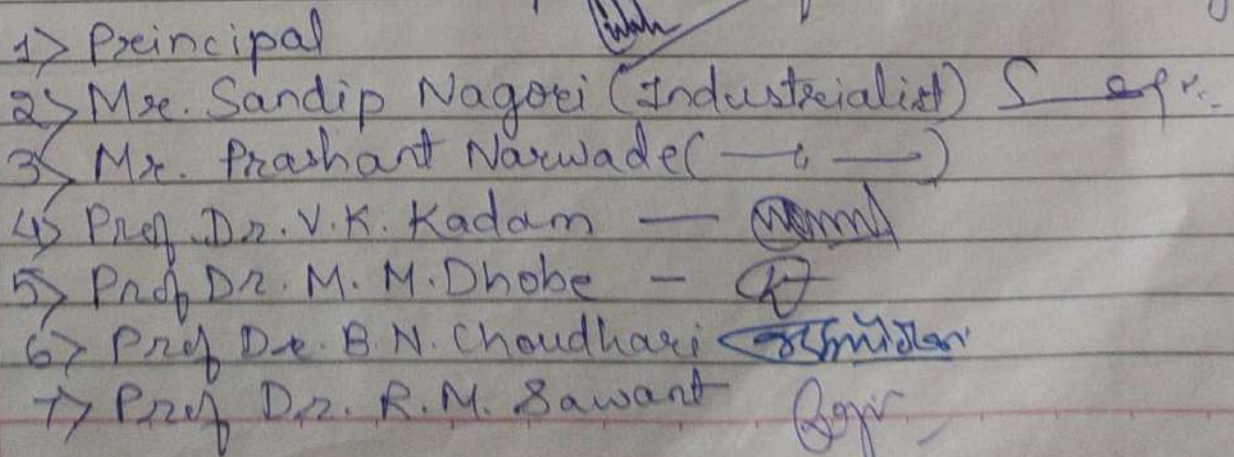 1> Principal
2> Mr. Sandip Nagori (Industrialist)
3> Mr. Prashant Narwade (—〃—)
4> Prof. Dr. V.K. Kadam —
5> Prof Dr. M. M. Dhobe -
6> Prof Dr. B. N. Choudhari
7> Prof Dr. R.M. Sawant